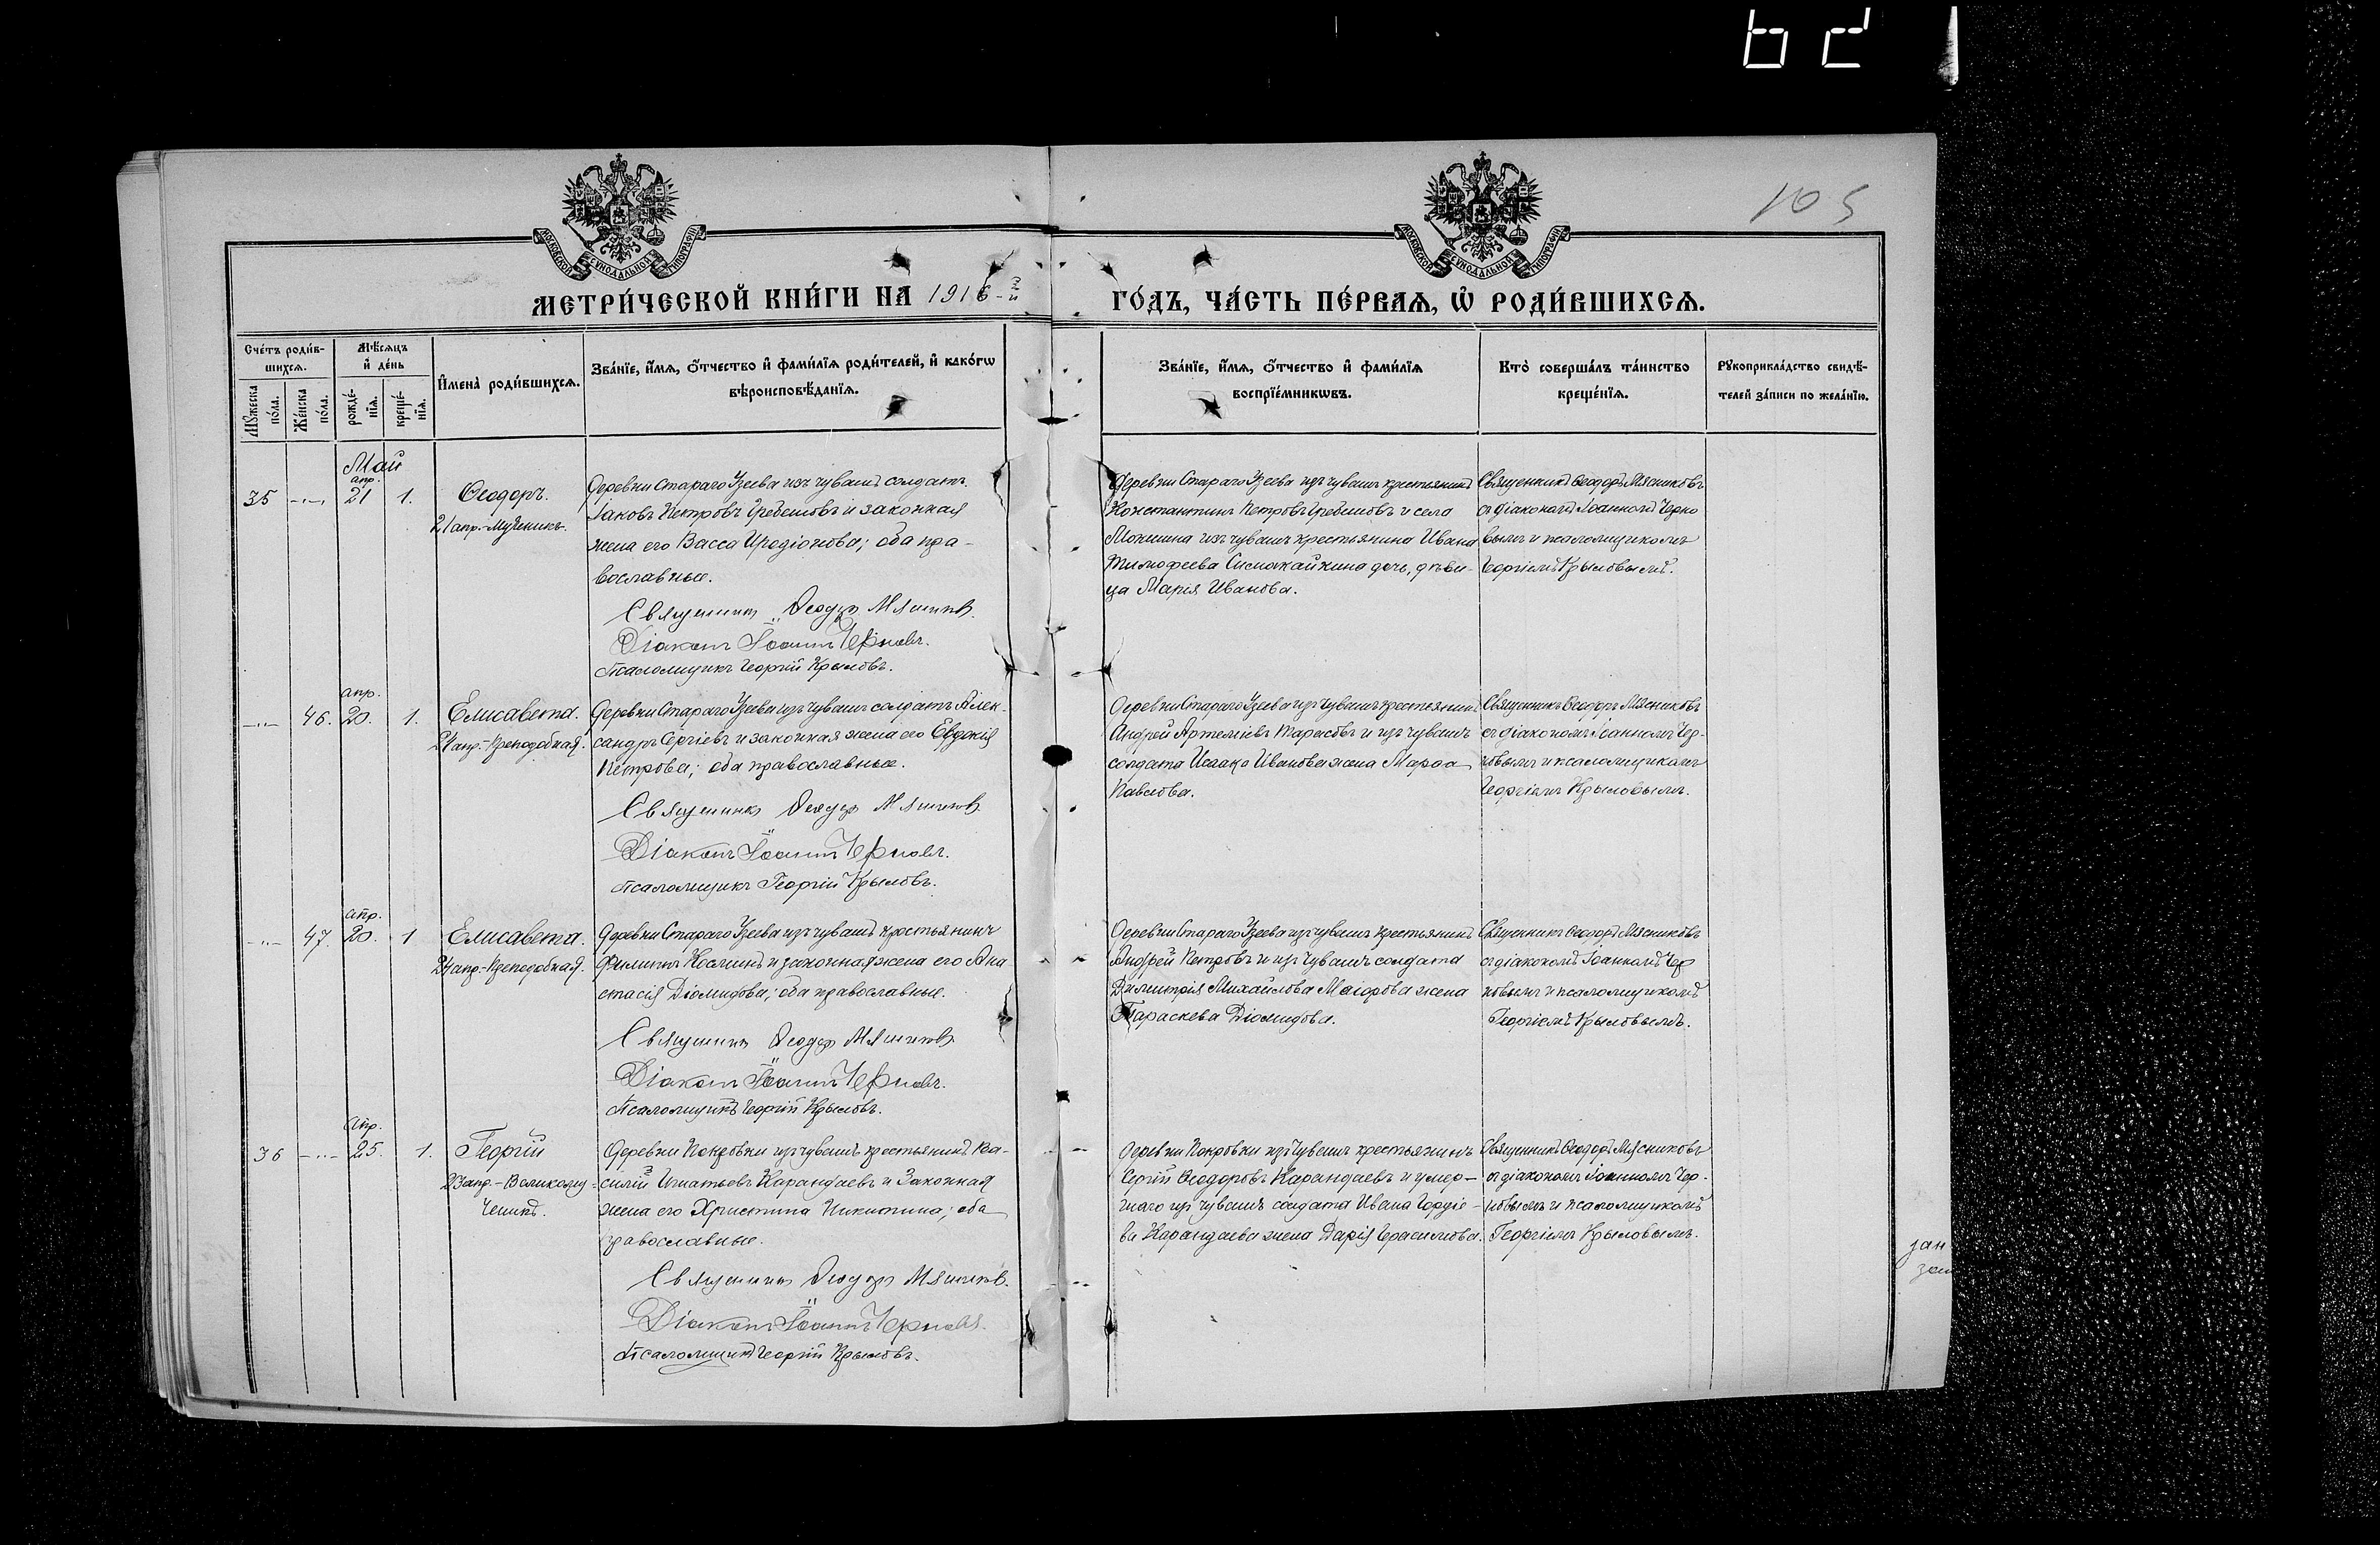 105
МОСКОВСКОЙ СУНОДАЛЬНОЙ ТИПОГРАФІИ
МОСКОВСКОЙ СУНОДАЛЬНОЙ ТИПОГРАФІИ
МЕТРИ́ЧЕСКОЙ КНИ́ГИ НА 1916-й
ГО́ДЪ, ЧА́СТЬ ПЕ́РВАѦ, Ѡ҆ РОДИ́ВШИХСѦ.
Сче́тъ роди́в-
шихсѧ.
Мꙋ́жеска по́ла.
Же́нска по́ла.
Мѣ́сѧцъ
и҆ де́нь
рожде́-
нїѧ.
креще́-
нїѧ.
И҆мена̀ роди́вшихсѧ.
Зва́нїе, и҆́мѧ, ѻ҆́тчество и҆ фами́лїѧ роди́телей, и҆ како́гѡ
вѣроисповѣ́данїѧ.
Зва́нїе, и҆́мѧ, ѻ҆́тчество и҆ фами́лїѧ
воспрїе́мникѡвъ.
Кто̀ соверша́лъ та́инство
креще́нїѧ.
Рꙋкоприкла́дство свидѣ́-
телей за́писи по жела́нїю.
Май
апр.
35 -"- 21 1.
Ѳеодоръ.
21 апр.-Мученикъ.
Деревни Стараго Узеева изъ чувашъ солдатъ
Іаковъ Петровъ Гребешовъ и законная
жена его Васса Иродіонова; оба пра-
вославные.
Священникъ Ѳеодоръ Мясниковъ.
Діаконъ Іоаннъ Черновъ.
Псаломщикъ Георгій Крыловъ.
Деревни Стараго Узеева изъ чувашъ крестьянинъ
Константинъ Петровъ Гребешовъ и села
Мокшина изъ чувашъ крестьянина Ивана
Тимофеева дочь, дѣви-
ца Марія Иванова.
Священникъ Ѳеодоръ Мясниковъ
съ діакономъ Іоанномъ Черно
вымъ и псаломщикомъ
Георгіемъ Крыловымъ.
апр.
-"- 46. 20. 1.
Елисавета.
24 апр.-Преподобная.
Деревни Стараго Узеева изъ чувашъ солдатъ Алек-
сандръ Сергіевъ и законная жена его Евдокія
Петрова; оба православные.
Священникъ Ѳеодоръ Мясниковъ
Діаконъ Іоаннъ Черновъ.
Псаломщикъ Георгій Крыловъ.
Деревни Стараго Узеева изъ чувашъ крестьянинъ
Андрей Артеміевъ Тарасовъ и изъ чувашъ
солдата Исаака Иванова жена Марѳа
Павлова.
Священникъ Ѳеодоръ Мясниковъ
съ діакономъ Іоанномъ Чер-
новымъ и псаломщикомъ
Георгіемъ Крыловымъ.
апр.
-"- 47. 20. 1
Елисавета.
24 апр.-Преподобная.
Деревни Стараго Узеева изъ чувашъ крестьянинъ
Филиппъ Косминъ и законная жена его Ана
стасія Діомидова; оба православные.
Священникъ Ѳеодоръ Мясниковъ
Діаконъ Іоаннъ Черновъ.
Псаломщикъ Георгій Крыловъ.
Деревни Стараго Узеева изъ чувашъ крестьянинъ
Андрей Петровъ и изъ чувашъ солдата
Димитрія Михайлова Маіорова жена
Параскева Діомидова.
Священникъ Ѳеодоръ Мясниковъ
съ діакономъ Іоанномъ Чер
новымъ и псаломщикомъ
Георгіемъ Крыловымъ.
апр.
36 -"- 25. 1.
Георгій
23 апр.-Великому-
ченикъ.
Деревни Покровки изъ чувашъ крестьянинъ Ва-
силій Игнатьевъ Карандаевъ и законная
жена его Христина Никитина; оба
православные.
Священникъ Ѳеодоръ Мясниковъ.
Діаконъ Іоаннъ Черновъ.
Псаломщикъ Георгій Крыловъ.
Деревни Покровки изъ чувашъ крестьянинъ
Сергій Ѳеодоровъ Карандаевъ и умер-
шаго изъ чувашъ солдата Ивана Гордіе-
ва Карандаева жена Дарія Герасимова.
Священникъ Ѳеодоръ Мясниковъ
съ діакономъ Іоанномъ Чер-
новымъ и псаломщикомъ
Георгіемъ Крыловымъ.